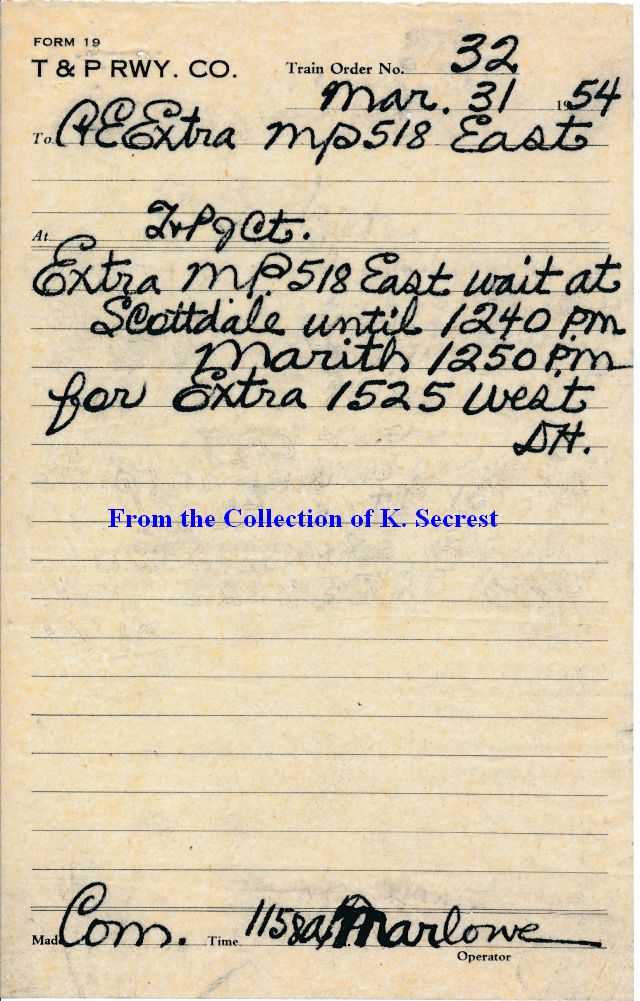 FORM 19
T & P RWY. CO.
Train Order No. 32
Mar. 31 1954
To C&E Extra MP 518 East
At T&P Jct.
Extra M.P. 518 East wait at
Scottdale until 1240 PM
Marith 1250 P.M
for Extra 1525 West
DH.
From the Collection of K. Secrest
Made Com. Time 1158a Marlowe
Operator